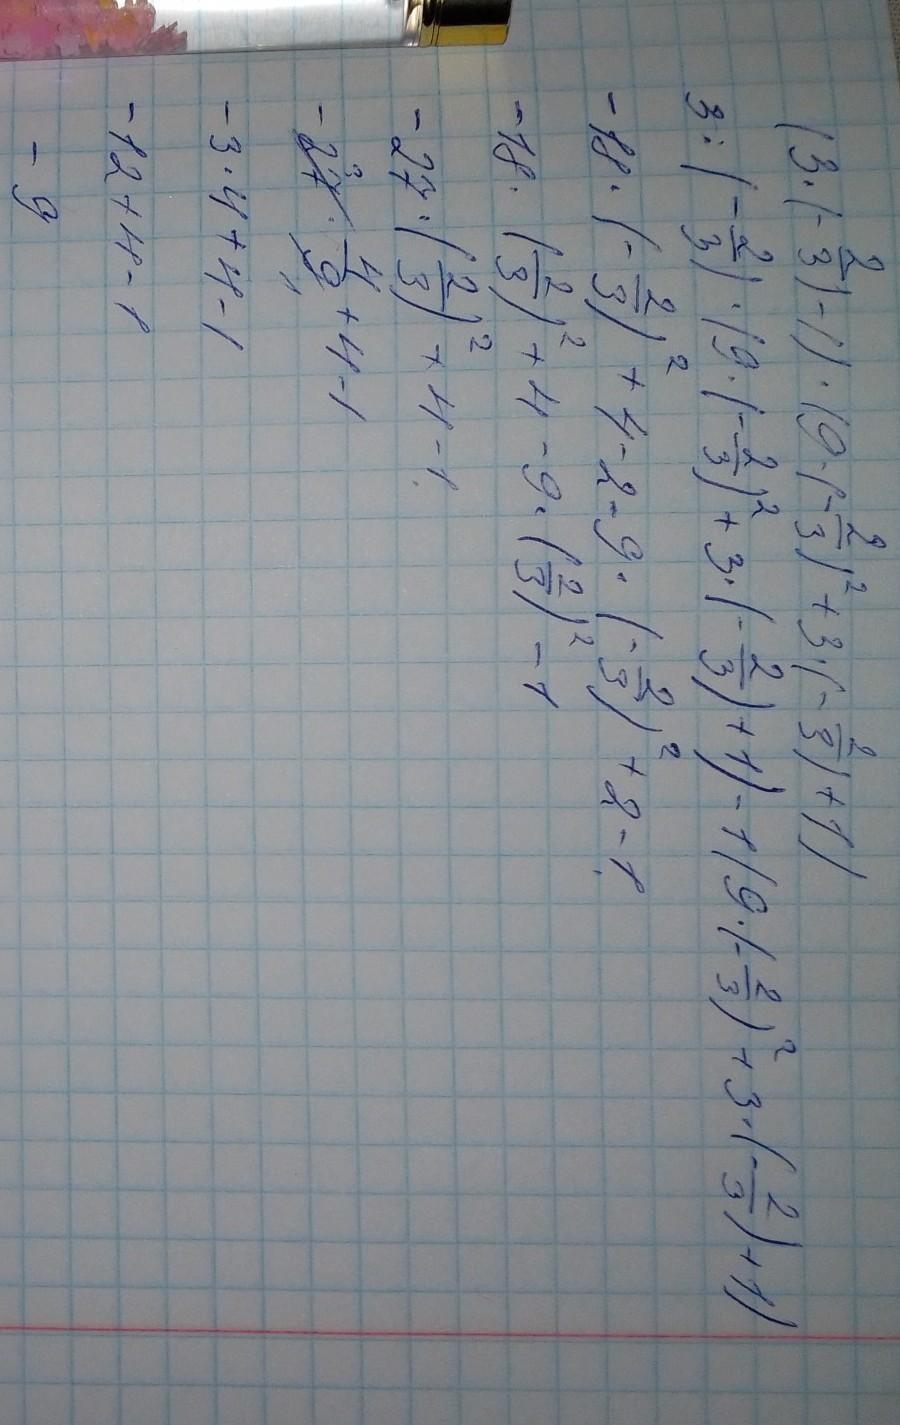 (3·(-2/3)-1)·(9·(-2/3)²+3·(-2/3)+1)
3·(-2/3)·(9·(-2/3)²+3·(-2/3)+1)-1(9·(-2/3)²+3·(-2/3)+1)
-18·(-2/3)²+4-2-9·(-2/3)²+2-1
-18·(2/3)²+4-9·(2/3)²-1
-27·(2/3)²+4-1
-27·4/9+4-1
-3·4+4-1
-12+4-1
-9